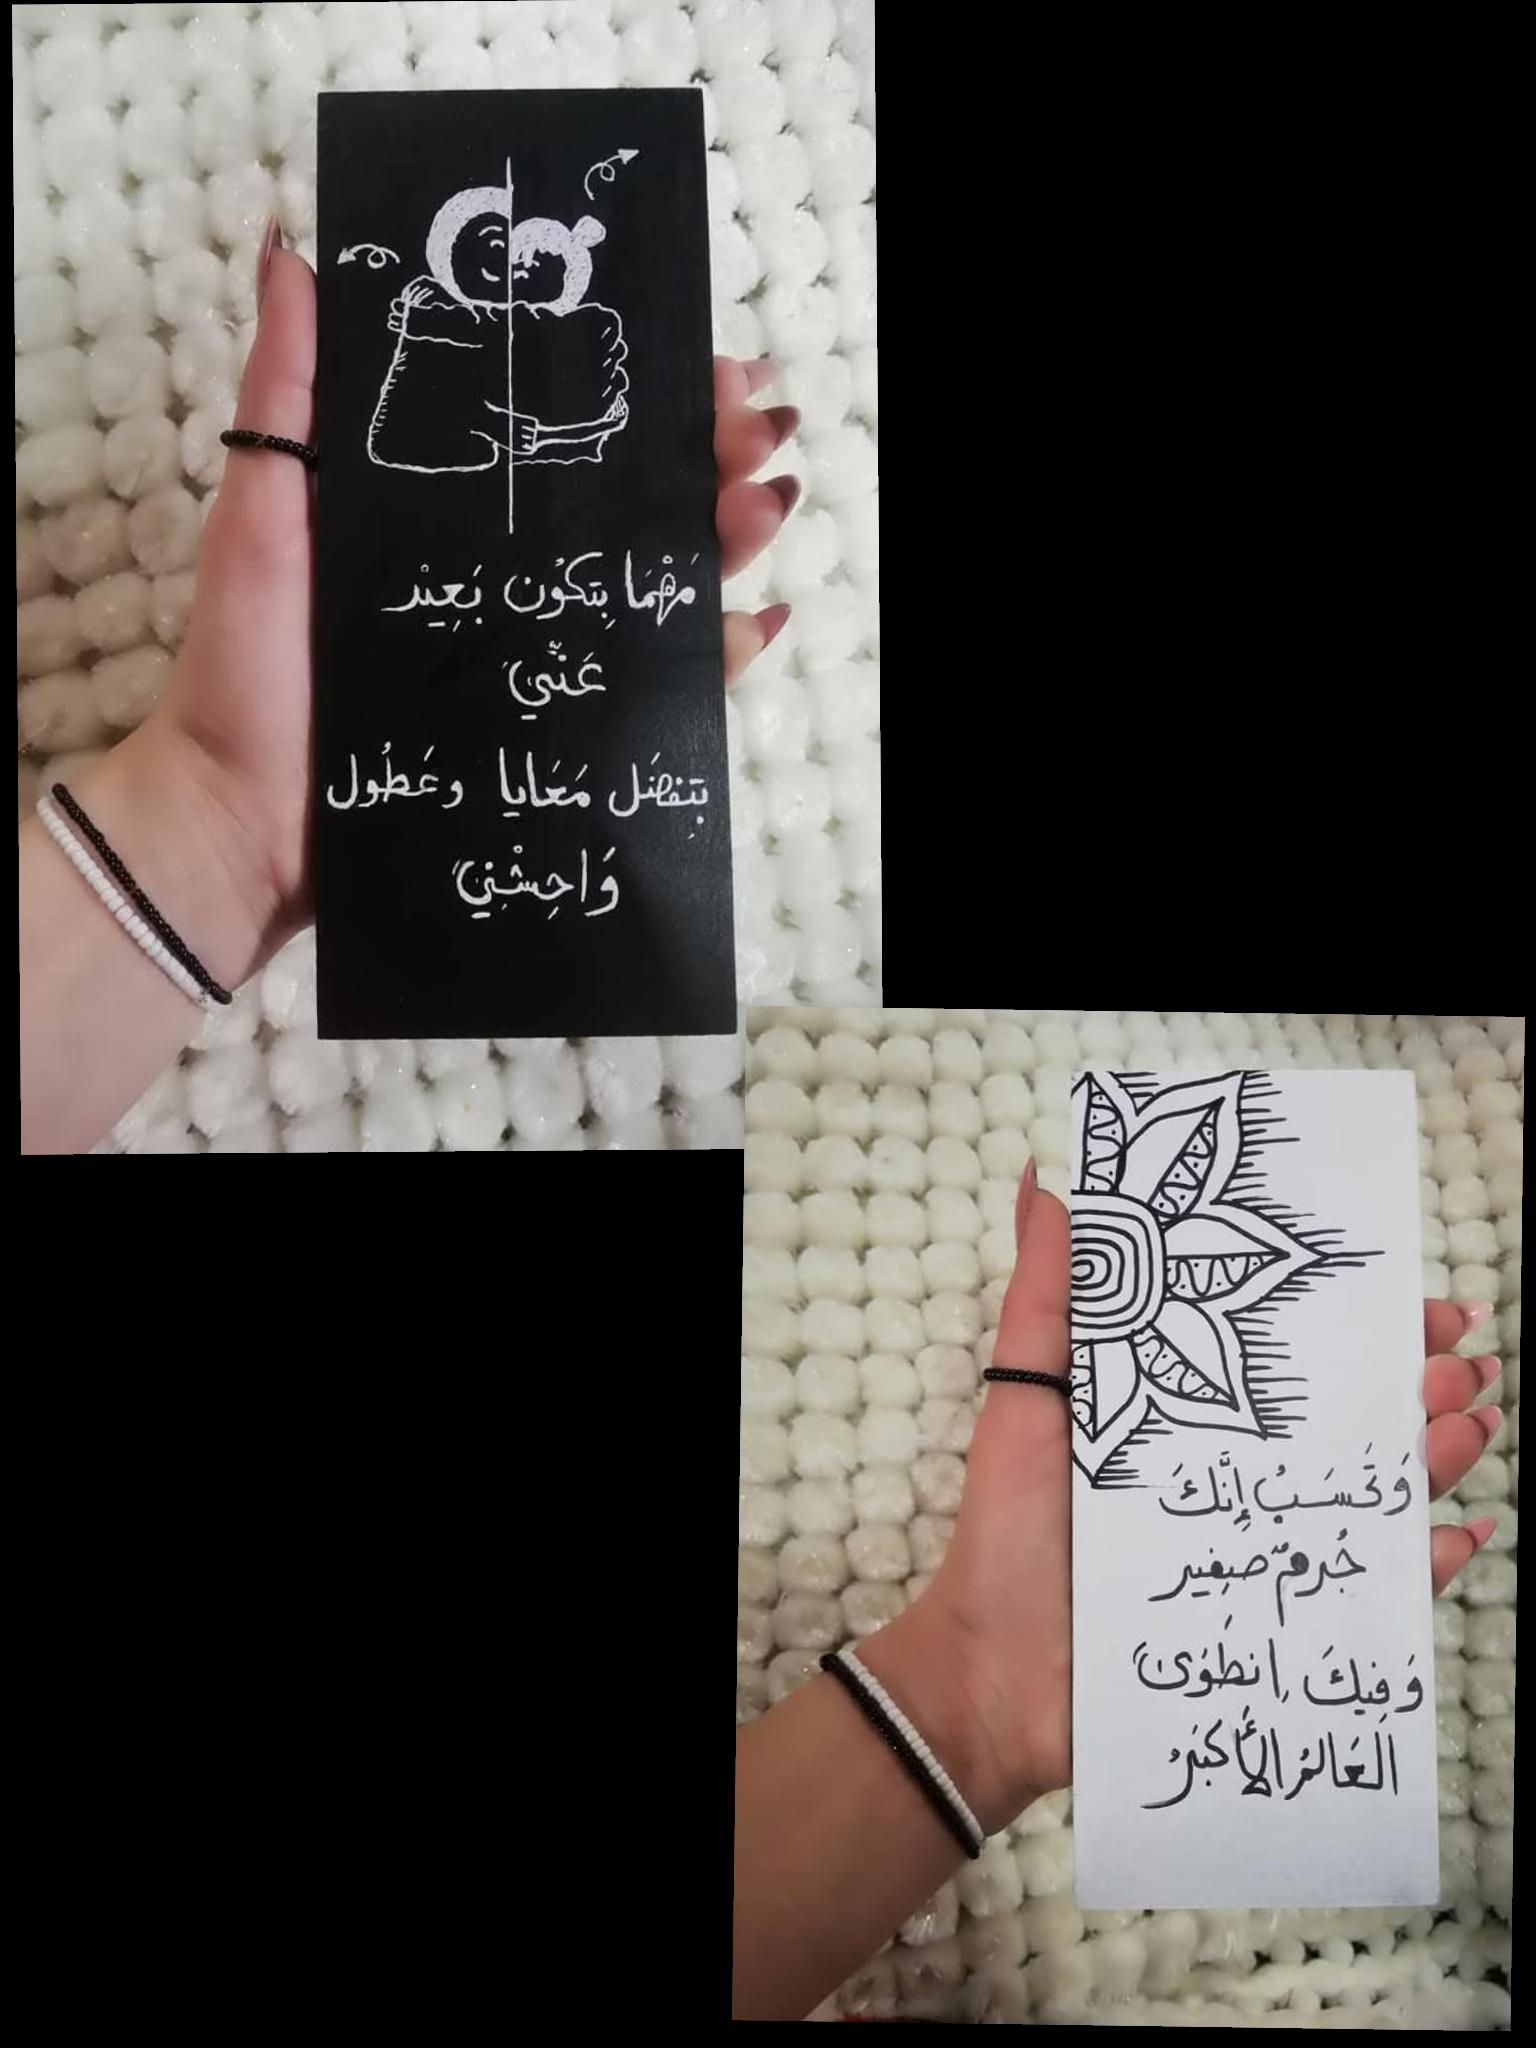 مَهْمَا بِتكوْن بَعِيْد
عَنّيَ
بِتِفضَل مَعَايا وعَطُول
وَاحِشْنِيَ
وَتَحسَبُ إِنَّكَ
جُرمٌ صغِير
وَفِيكَ اِنطَوَىَ
العَالمُ الأَكبَرُ